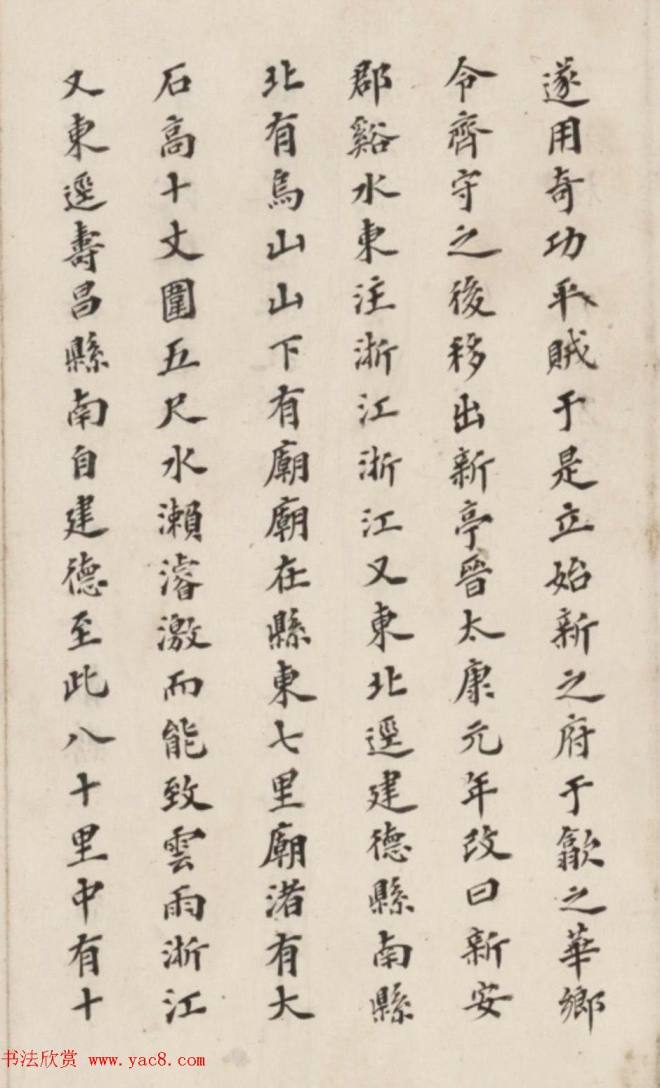 遂用奇功平賊于是立始新之府于歙之華鄉
令齊守之後移出新亭晉太康元年改曰新安
郡谿水東注浙江浙江又東北逕建德縣南縣
北有烏山山下有廟廟在縣東七里廟渚有大
石高十丈圍五尺水瀨濬激而能致雲雨浙江
又東逕壽昌縣南自建德至此八十里中有十
书法欣赏 www.yac8.com